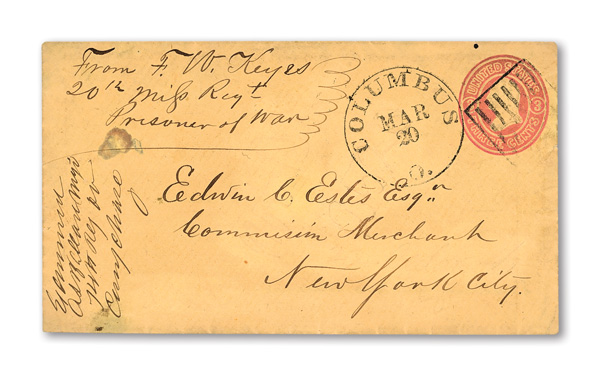 From F. W. Keyes
20th Miss Regt
Prisoner of War
COLUMBUS
MAR
20
O.
UNITED STATES
3
CENTS
Edwin C. Estes Esqr
Commission Merchant
New York City.
Examined
Camp Chase